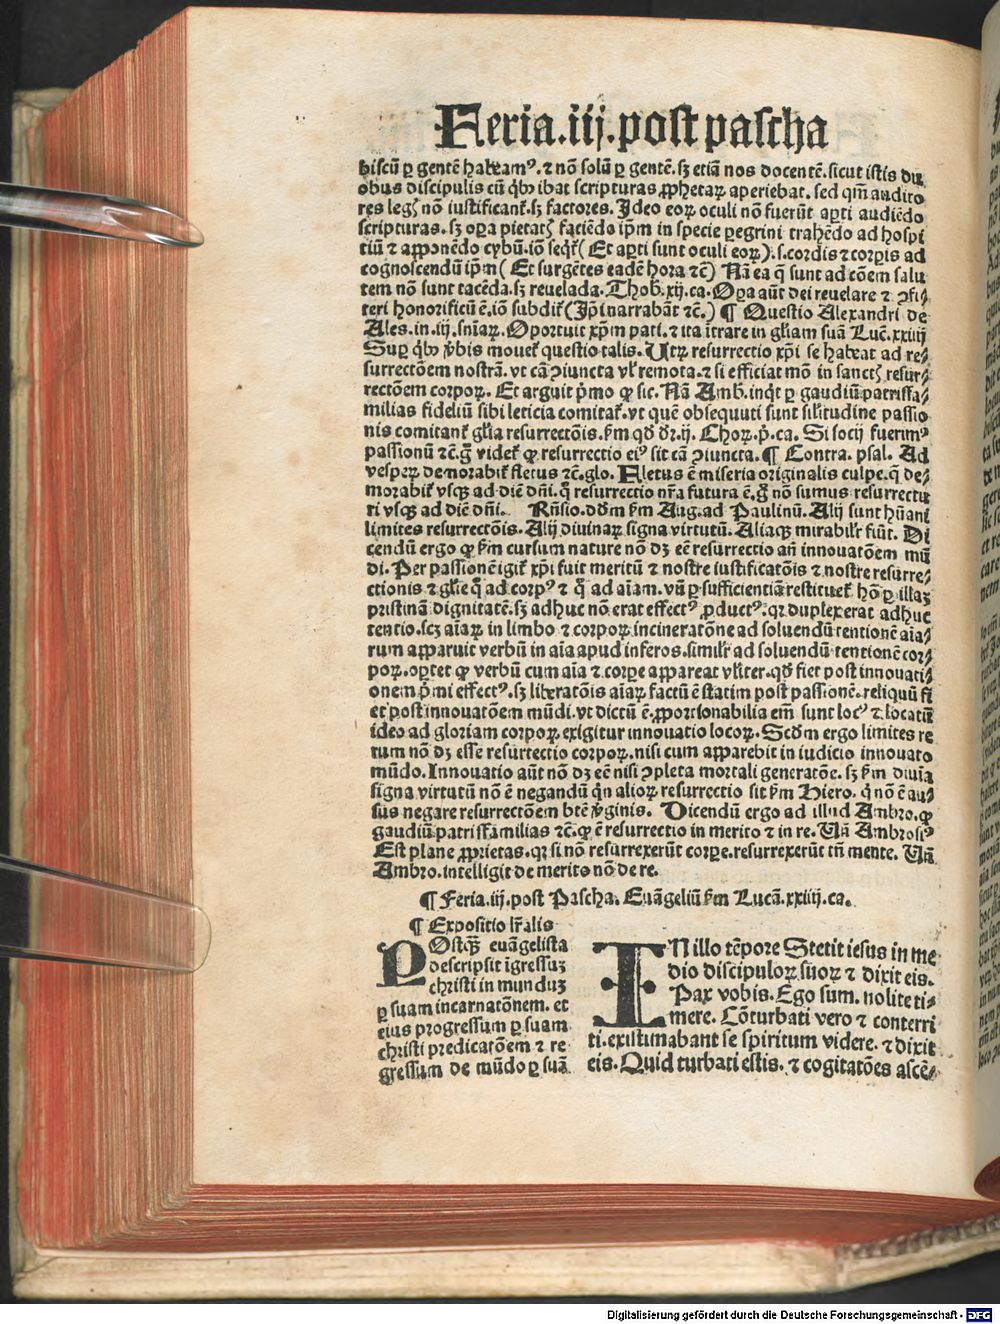 Feria.iij.post pascha
biscū ꝑ gentē habeamꝰ. ⁊ nō solū ꝑ gentē. sꝫ etiā nos docentē. sicut istis du
obus discipulis cū qͥbꝰ ibat scripturas ꝓphetaꝝ aperiebat. sed qm̄ audito
res legꝭ nō iustificant᷑. sꝫ factores. Ideo eoꝝ oculi nō fuerūt apti audiēdo
scripturas. sꝫ oꝑa pietatꝭ faciēdo ip̄m in specie ꝑegrini trahēdo ad hospi
tiū ⁊ apponēdo cybū. iō seqͥt᷑ (Et apti sunt oculi eoꝝ). s. cordis ⁊ corꝑis ad
cognoscendū ip̄m (Et surgētes eadē hora ⁊c̄) Nā ea q̄ sunt ad cōem salu
tem nō sunt tacēda. sꝫ reuelada. Thob. xij. ca. Oꝑa aūt dei reuelare ⁊ ꝯfi⸗
teri honorificū ē. iō subdit᷑ (Ip̄i narrabāt ⁊c̄.) ¶ Questio Alexandri de
Ales. in. iij. sn̄iaꝝ. Oportuit xp̄m pati. ⁊ ita itrare in gl̄iam suā Luc̄. xxiiij
Suꝑ qͥbꝰ v̓bis mouet᷑ questio talis. Utꝝ resurrectio xp̄i se habeat ad re⸗
surrectōem nostrā. vt cā ꝯiuncta vl̓ remota. ⁊ si efficiat mō in sanctꝭ resur⸗
rectōem corpoꝝ. Et arguit pͥmo ꝙ sic. Nā Amb. inqͥt ꝑ gaudiū patrisfa⸗
milias fideliū sibi leticia comitat᷑. vt quē obsequuti sunt sil̓itudine passio
nis comitant᷑ gl̄ia resurrectōis. s̓m qd̓ dr̄. ij. Choꝝ. pͥ. ca. Si socij fuerimꝰ
passionū ⁊c̄. g̊ videt᷑ ꝙ resurrectio eiꝰ sit cā ꝯiuncta. ¶ Contra. psal. Ad
vesꝑeꝝ demorabit᷑ fletus ⁊c̄. glo. Fletus ē miseria originalis culpe. q̄ de⸗
morabit᷑ vsqꝫ ad diē dn̄i. qͥ resurrectio nr̄a futura ē. g̊ nō sumus resurrectu
ri vsqꝫ ad diē dn̄i. Rn̄sio. dd̓m s̓m Aug. ad Paulinū. Alij sunt hūani
limites resurrectōis. Alij diuinaꝝ signa virtutū. Aliaqꝫ mirabilr̄ fiūt. Di
cendū ergo ꝙ s̓m cursum nature nō dꝫ eē resurrectio an̄ innouatōem mū
di. Per passionē igit᷑ xp̄i fuit meritū ⁊ nostre iustificatōis ⁊ nostre resurre⸗
ctionis ⁊ gl̄ie qͣ ad corpꝰ ⁊ qͣ ad aīam. vn̄ ꝑ sufficientiā restituet᷑ hō ꝑ illaꝫ
pristinā dignitatē. sꝫ adhuc nō erat effectꝰ ꝓductꝰ. qꝛ duplex erat adhuc
tentio. scꝫ aīaꝝ in limbo ⁊ corpoꝝ incineratōne ad soluendū tentionē aīa⸗
rum apparuit verbū in aīa apud inferos. similr̄ ad soluendū tentionē cor⸗
poꝝ. oꝑtet ꝙ verbū cum aīa ⁊ corꝑe appareat vl̓iter. qd̓ fiet post innouati⸗
onem pͥmi effectꝰ. sꝫ liberatōis aīaꝝ factū ē statim post passionē. reliquū fi
et post innouatōem mūdi. vt dictū ē. ꝓporcionabilia em̄ sunt locꝰ ⁊ locatū
ideo ad gloriam corpoꝝ exigitur innouatio locoꝝ. Scd̓m ergo limites re
rum nō dꝫ esse resurrectio corpoꝝ. nisi cum apparebit in iudicio innouato
mūdo. Innouatio aūt nō dꝫ eē nisi ꝯpleta mortali generatōe. sꝫ s̓m diuīa
signa virtutū nō ē negandū qͥn alioꝝ resurrectio sit s̓m Hiero. qͥ nō ē au⸗
sus negare resurrectōem btē v̓ginis. Dicendū ergo ad illud Ambro. ꝙ
gaudiū patrisfamilias ⁊c̄. ꝙ ē resurrectio in merito ⁊ in re. Un̄ Ambrosiꝰ
Est plane ꝓprietas. qꝛ si nō resurrexerūt corꝑe. resurrexerūt tn̄ mente. Un̄
Ambro. intelligit de merito nō de re.
¶ Feria. iij. post Pascha. Euāgeliū s̓m Lucā. xxiiij. ca.
¶ Expositio lr̄alis
POstqꝫ̄ euāgelista
descripsit īgressuꝫ
christi in munduꝫ
ꝑ suam incarnatōnem. et
eius progressum ꝑ suam
christi predicatōem ⁊ re
gressum de mūdo ꝑ suā
IN illo tēpore Stetit iesus in me
dio discipuloꝝ suoꝝ ⁊ dixit eis.
Pax vobis. Ego sum. nolite ti⸗
mere. Cōturbati vero ⁊ conterri
ti. existimabant se spiritum videre. ⁊ dixit
eis. Quid turbati estis. ⁊ cogitatōes ascē⸗
Digitalisierung gefördert durch die Deutsche Forschungsgemeinschaft - DFG